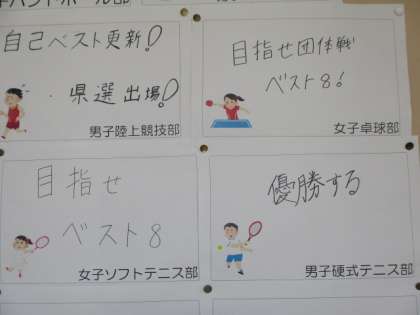 ハンドボール部
自己ベスト更新!
県選出場!
男子陸上競技部
目指せ団体戦
ベスト8!
女子卓球部
目指せ
ベスト8
女子ソフトテニス部
優勝する
男子硬式テニス部